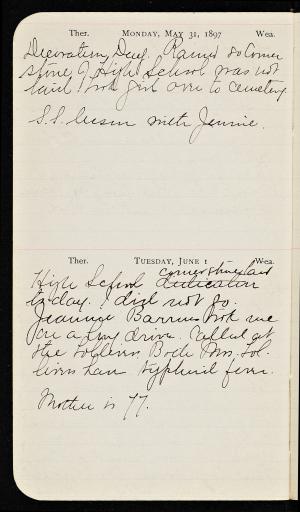 Ther. MONDAY, MAY 31, 1897 Wea.
Decoration Day. Rained so Corner
stone of High School was not
laid. took girl over to cemetery.
S.S. lesson with Jennie.
Ther. TUESDAY, JUNE 1 Wea.
cornerstone laid
High School dedication
to-day. I did not go.
Jeannie Barrows took me
on a long drive. Called at
the Collins. Both Mrs. Col-
lins have typhoid fever.
Mother is 77.